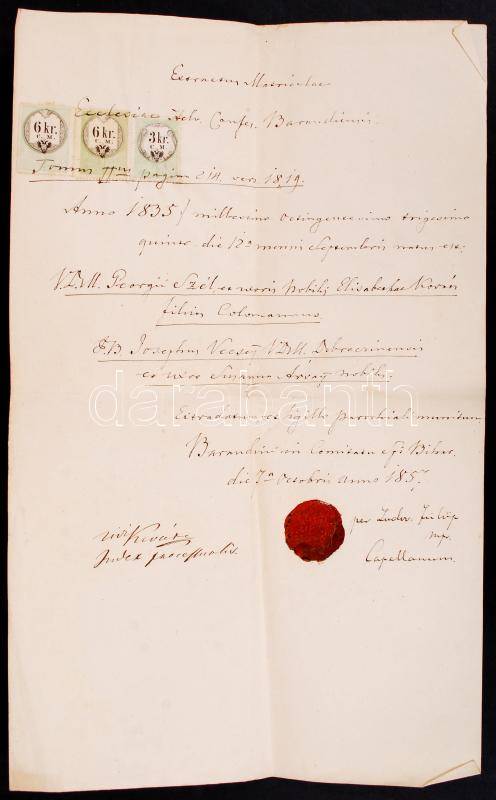 Extractus Matriculae
Ecclesiae Helv. Confes. Barandiensis.
6 kr. C. M.
6 kr. C. M.
3 kr. C. M.
Tomus pagina 214. vers 18, 19.
Anno 1835 / millesimo octingentesimo trigesimo
quinto die 13a mensis Septembris natus est:
V.D.M. Georgii Szél, et uxoris Nobilis Elisabethae Kovács
filius Colomannus
P.P. Josephus Vecsey V.D.M. Debrecinensis
et uxor Susanna Nobilis.
Extradatum et sigillo parochiali munitum
Barandini in Comitatu Bihar.
die 7a Octobris anno 1857.
per Ludov. Fülöp
mp.
Capellanum.
vidi Kováts
Index processualis
darabanth